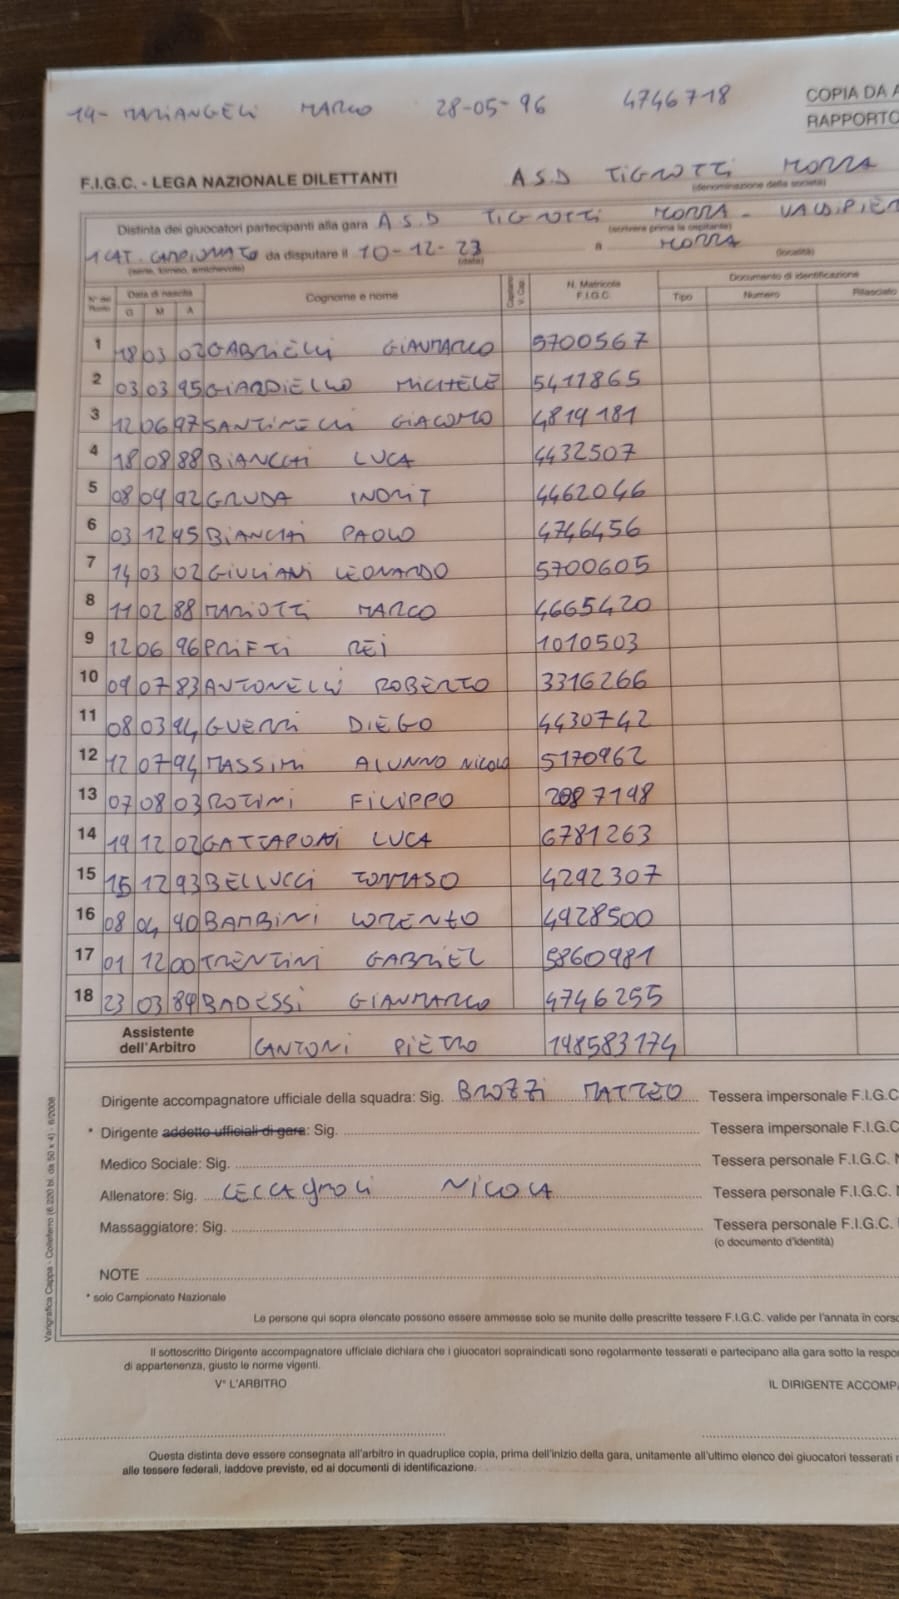 19- MARIANGELI MARCO 28-05-96 4746718
COPIA DA A
RAPPORTO
F.I.G.C. - LEGA NAZIONALE DILETTANTI A.S.D TIGROTTI MORRA
(denominazione della società)
Distinta dei giuocatori partecipanti alla gara A.S.D TIGROTTI MORRA - VALDIPIER
(scrivere prima la ospitante)
1 CAT. CAMPIONATO da disputare il 10-12-23 a MORRA
(serie, torneo, amichevole) (data) (località)
Data di nascita Cognome e nome N. Matricola F.I.G.C. Documento di identificazione
G M A Tipo Numero Rilasciato
1 18 03 02 GABRIELLI GIANMARCO 5700567
2 03 03 95 GIARDIELLO MICHELE 5411865
3 12 06 97 SANTINELLI GIACOMO 4819181
4 18 08 88 BIANCHI LUCA 4432507
5 08 09 92 GRUDA INDRIT 4462046
6 03 12 95 BIANCHI PAOLO 4746456
7 14 03 02 GIULIANI LEONARDO 5700605
8 11 02 88 MARIOTTI MARCO 4665420
9 12 06 96 PRIFTI REI 1010503
10 09 07 83 ANTONELLI ROBERTO 3316266
11 08 03 94 GUERRI DIEGO 4430742
12 12 07 94 MASSIMI ALUNNO NICOLO 5170962
13 07 08 03 ROTINI FILIPPO 2087148
14 19 12 02 GATTAPONI LUCA 6781263
15 15 12 93 BELLUCCI TOMMASO 4292307
16 08 04 90 BAMBINI LORENZO 4928500
17 01 12 00 TRENTINI GABRIEL 5860981
18 23 03 89 BADESSI GIANMARCO 4746255
Assistente dell'Arbitro CANTONI PIETRO 148583174
Dirigente accompagnatore ufficiale della squadra: Sig. BROZZI MATTEO Tessera impersonale F.I.G.C
* Dirigente addetto ufficiali di gara: Sig. Tessera impersonale F.I.G.C
Medico Sociale: Sig. Tessera personale F.I.G.C. N
Allenatore: Sig. CECCAGNOLI NICOLA Tessera personale F.I.G.C. N
Massaggiatore: Sig. Tessera personale F.I.G.C.
(o documento d'identità)
NOTE
* solo Campionato Nazionale
Le persone qui sopra elencate possono essere ammesse solo se munite delle prescritte tessere F.I.G.C. valide per l'annata in corso
Il sottoscritto Dirigente accompagnatore ufficiale dichiara che i giuocatori sopraindicati sono regolarmente tesserati e partecipano alla gara sotto la respon
di appartenenza, giusto le norme vigenti.
V° L'ARBITRO IL DIRIGENTE ACCOMPA
Questa distinta deve essere consegnata all'arbitro in quadruplice copia, prima dell'inizio della gara, unitamente all'ultimo elenco dei giuocatori tesserati
alle tessere federali, laddove previste, ed ai documenti di identificazione.
Varigrafica Cappa - Colleferro (6.220 bl. da 50 x 4) - 6/2008